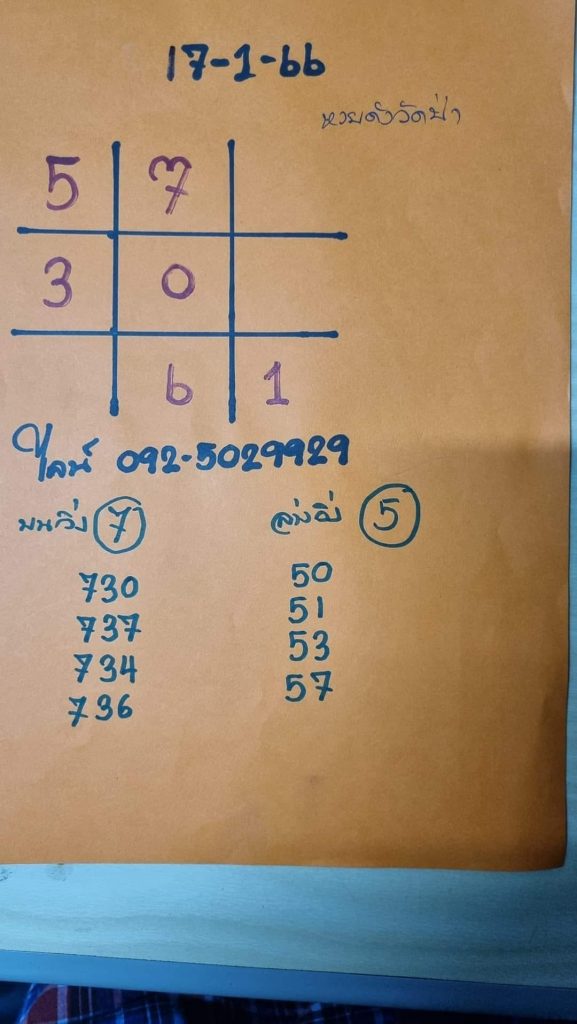 17-1-66
หวยดังวัดป่า
5 7
3 0
6 1
ไลน์ 092-5029929
บนวิ่ง 7 ล่างวิ่ง 5
730 50
737 51
734 53
736 57